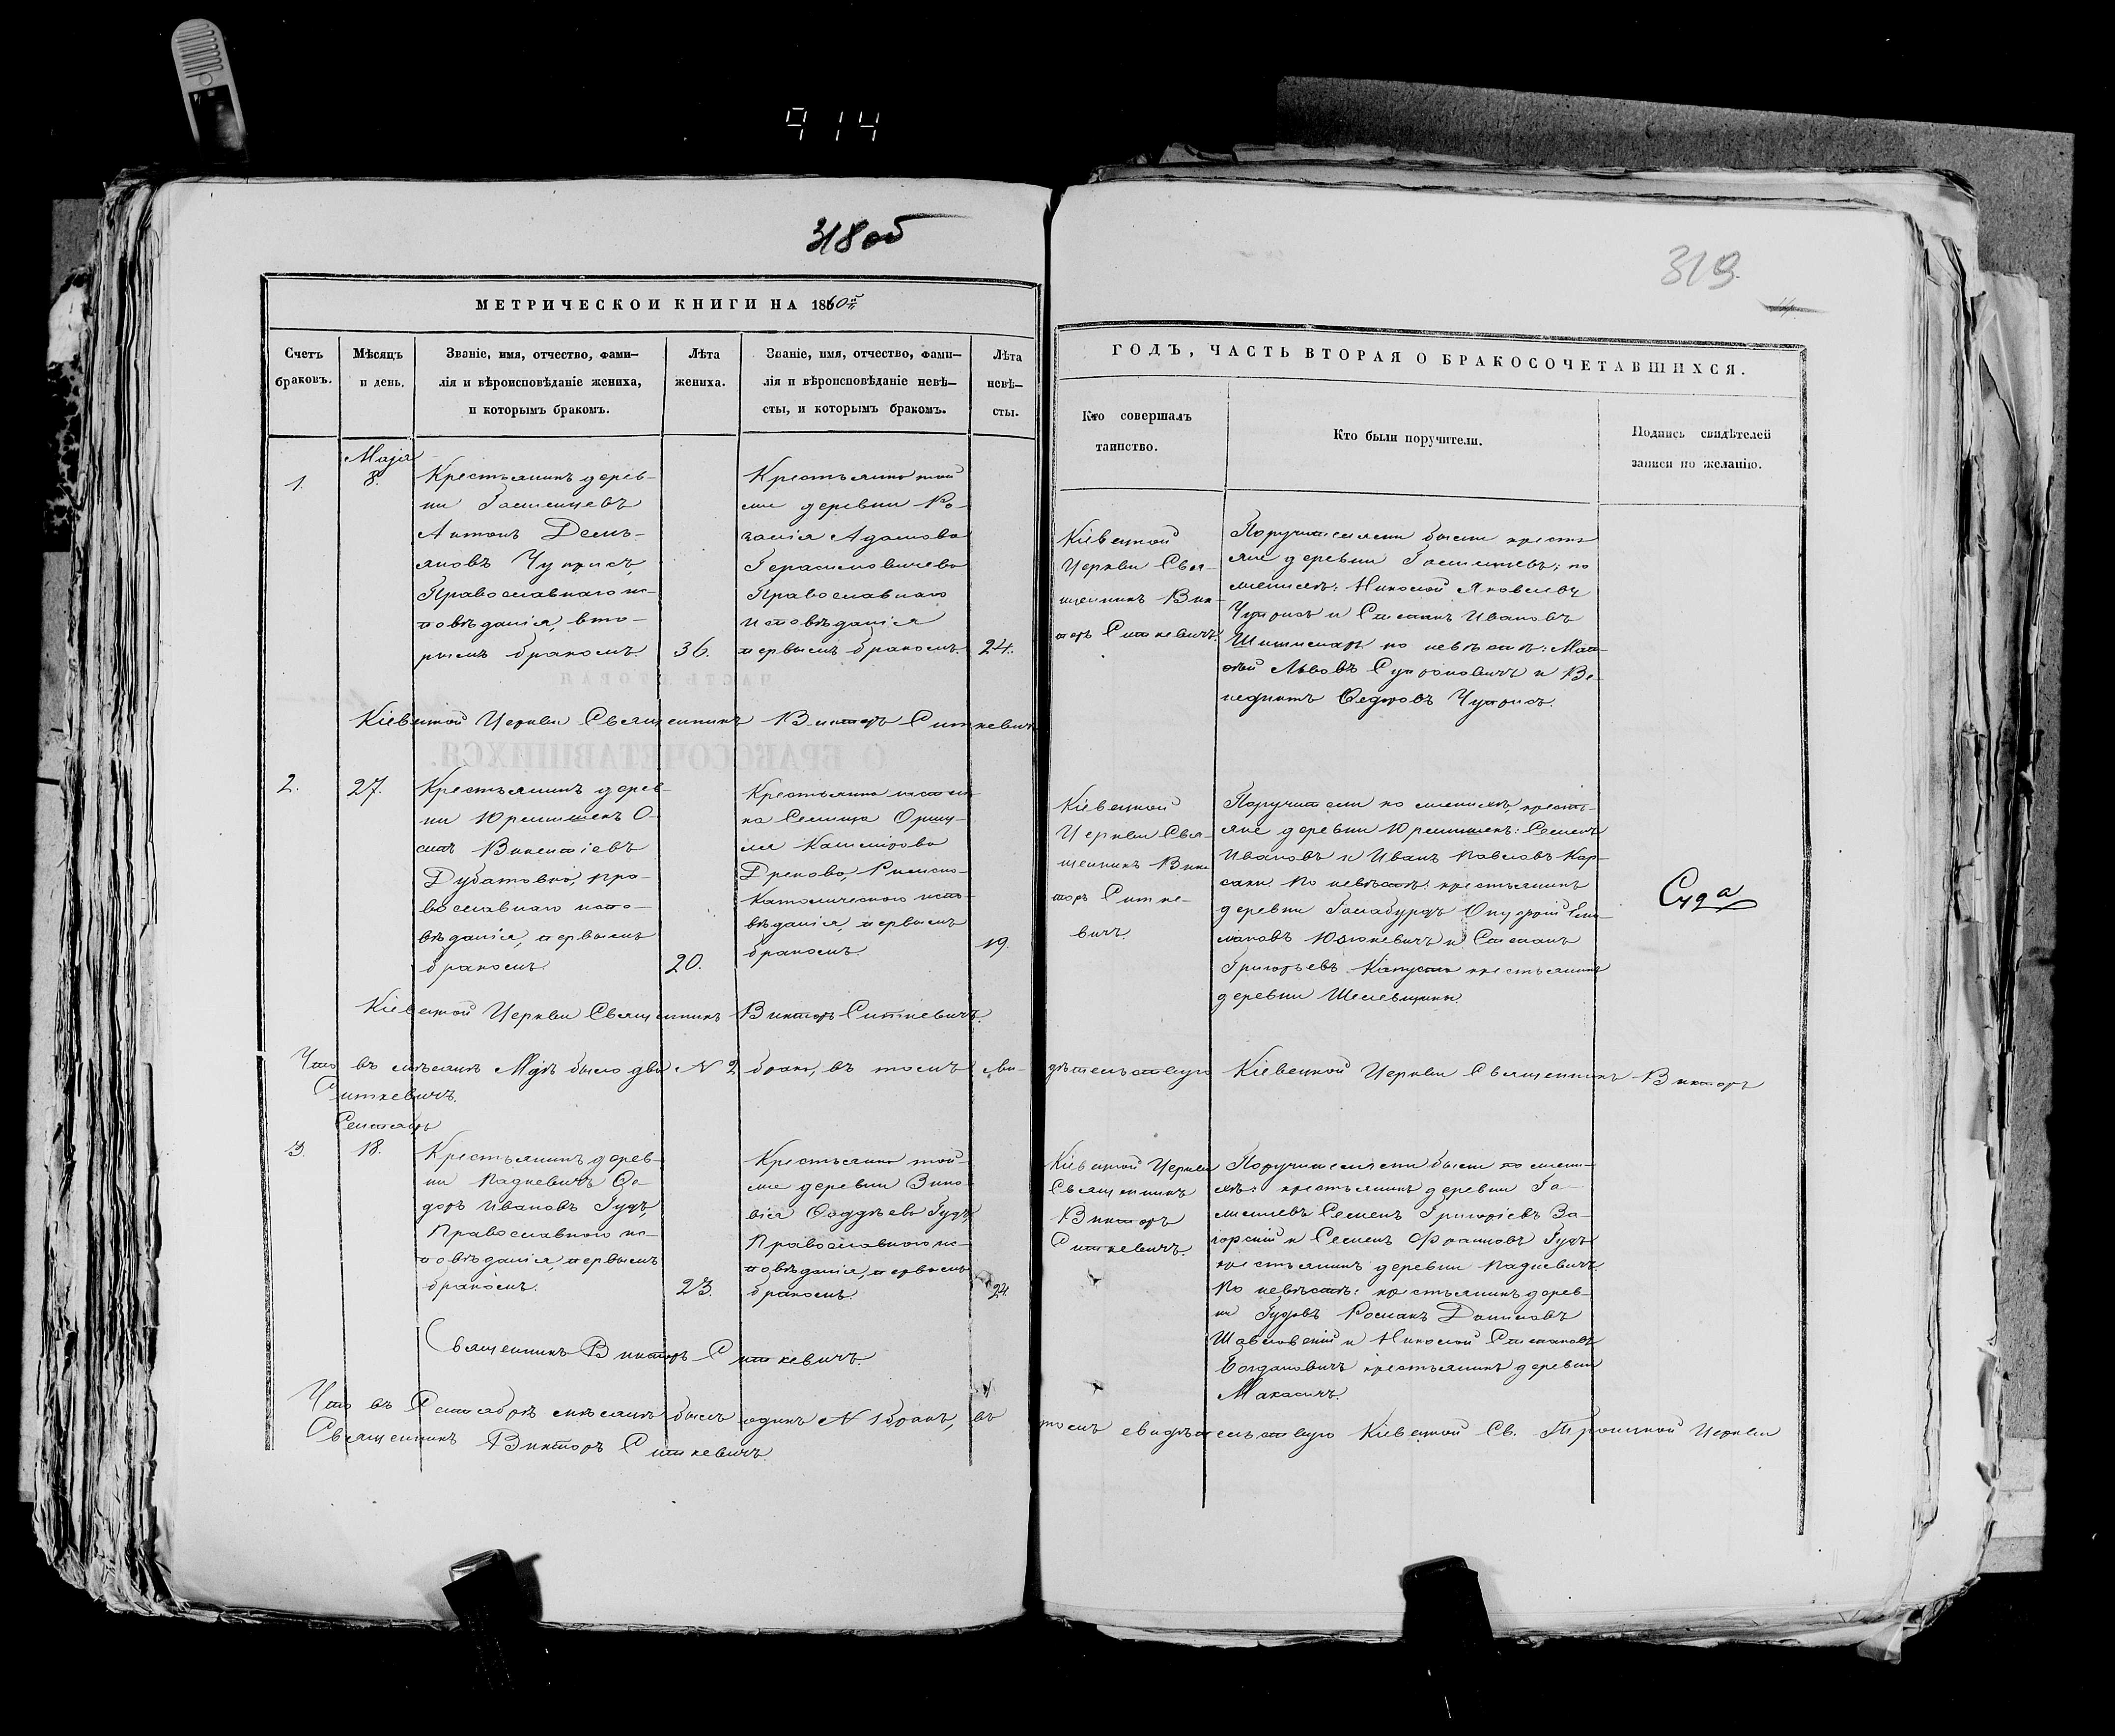 914
318 об
319
МЕТРИЧЕСКОИ КНИГИ НА 1860й
Счетъ
браковъ.
Мѣсяцъ
и день.
Званіе, имя, отчество, фами-
лія и вѣроисповѣданіе жениха,
и которымъ бракомъ.
Лѣта
жениха.
Званіе, имя, отчество, фами-
лія и вѣроисповѣданіе невѣ-
сты, и которымъ бракомъ.
Лѣта
невѣ-
сты.
ГОДЪ, ЧАСТЬ ВТОРАЯ О БРАКОСОЧЕТАВШИХСЯ.
Кто совершалъ
таинство.
Кто были поручители.
Подпись свидѣтелей
записи по желанію.
1.
Маія
8.
Крестьянинъ дерев-
ни
Антонъ Демь-
яновъ Чуприсъ,
Православнаго ис-
повѣданія, вто-
рымъ бракомъ.
36.
Крестьянка той
же деревни Ро-
залія Адамова
Герасимовичева
Православнаго
исповѣданія
первымъ бракомъ.
24.
Кіевецкой
Церкви Свя-
щенникъ Вик-
торъ Ситкевичъ.
Поручителями были кресть
яне деревни по
женихѣ: Николай Яковлевъ
Чуприсъ и Степанъ Ивановъ
по невѣстѣ: Мат-
ѳей Львовъ и Ве-
недиктъ Ѳедоровъ Чуприсъ.
Кіевецкой Церкви Священникъ Викторъ Ситкевичъ
2.
27.
Крестьянинъ дерев-
ни Юремишекъ О-
сипъ Викентіевъ
Дубатовка, пра-
вославнаго испо-
вѣданія, первымъ
бракомъ.
20.
Крестьянка
Казимірова
Дренова, Римско-
Католическаго испо-
вѣданія, первымъ
бракомъ.
19.
Кіевецкой
Церкви Свя-
щенникъ Вик
торъ Ситке-
вичъ.
Поручители по женихѣ, кресть-
яне деревни Юремишекъ: Семенъ
Ивановъ и Иванъ Павловъ Кор-
саки. По невѣстѣ: крестьянинъ
деревни Онуфрій
Юзюкевичъ и Степанъ
Григорьевъ Капуста крестьянинъ
деревни
Суда
Кіевецкой Церкви Священникъ Викторъ Ситкевичъ.
Что въ мѣсяцѣ Маѣ было два № 2 брака, въ томъ сви-дѣтельствую Кіевецкой Церкви Священникъ Викторъ
Ситкевичъ.
Сентябрь
3.
18.
Крестьянинъ дерев-
ни Падневичъ Ѳе-
доръ Ивановъ Гудъ,
Православнаго ис-
повѣданія, первымъ
бракомъ.
23.
Крестьянка той-
же деревни Зино-
вія Ѳаддѣева Гудъ,
Православнаго ис-
повѣданія, первымъ
бракомъ.
24.
Кіевецкой Церкви
Священникъ
Викторъ
Ситкевичъ.
Поручителями были по жени-
хѣ: крестьянинъ деревни
Семенъ Григоріевъ За-
горскій и Семенъ Гудъ
крестьянинъ деревни Падневичъ.
По невѣстѣ: крестьянинъ дерев-
ни Гудовъ Романъ Даниловъ
и Николай Степановъ
Богдановичъ крестьянинъ деревни
Макасичъ.
Священникъ Викторъ Ситкевичъ.
Что въ Сентябрѣ мѣсяцѣ былъ одинъ № 1 бракъ, въ томъ свидѣтельствую Кіевецкой Св. Троицкой Церкви
Священникъ Викторъ Ситкевичъ.